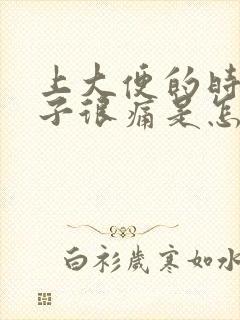 上大便的时
子很痛是怎
白衫岁寒如水